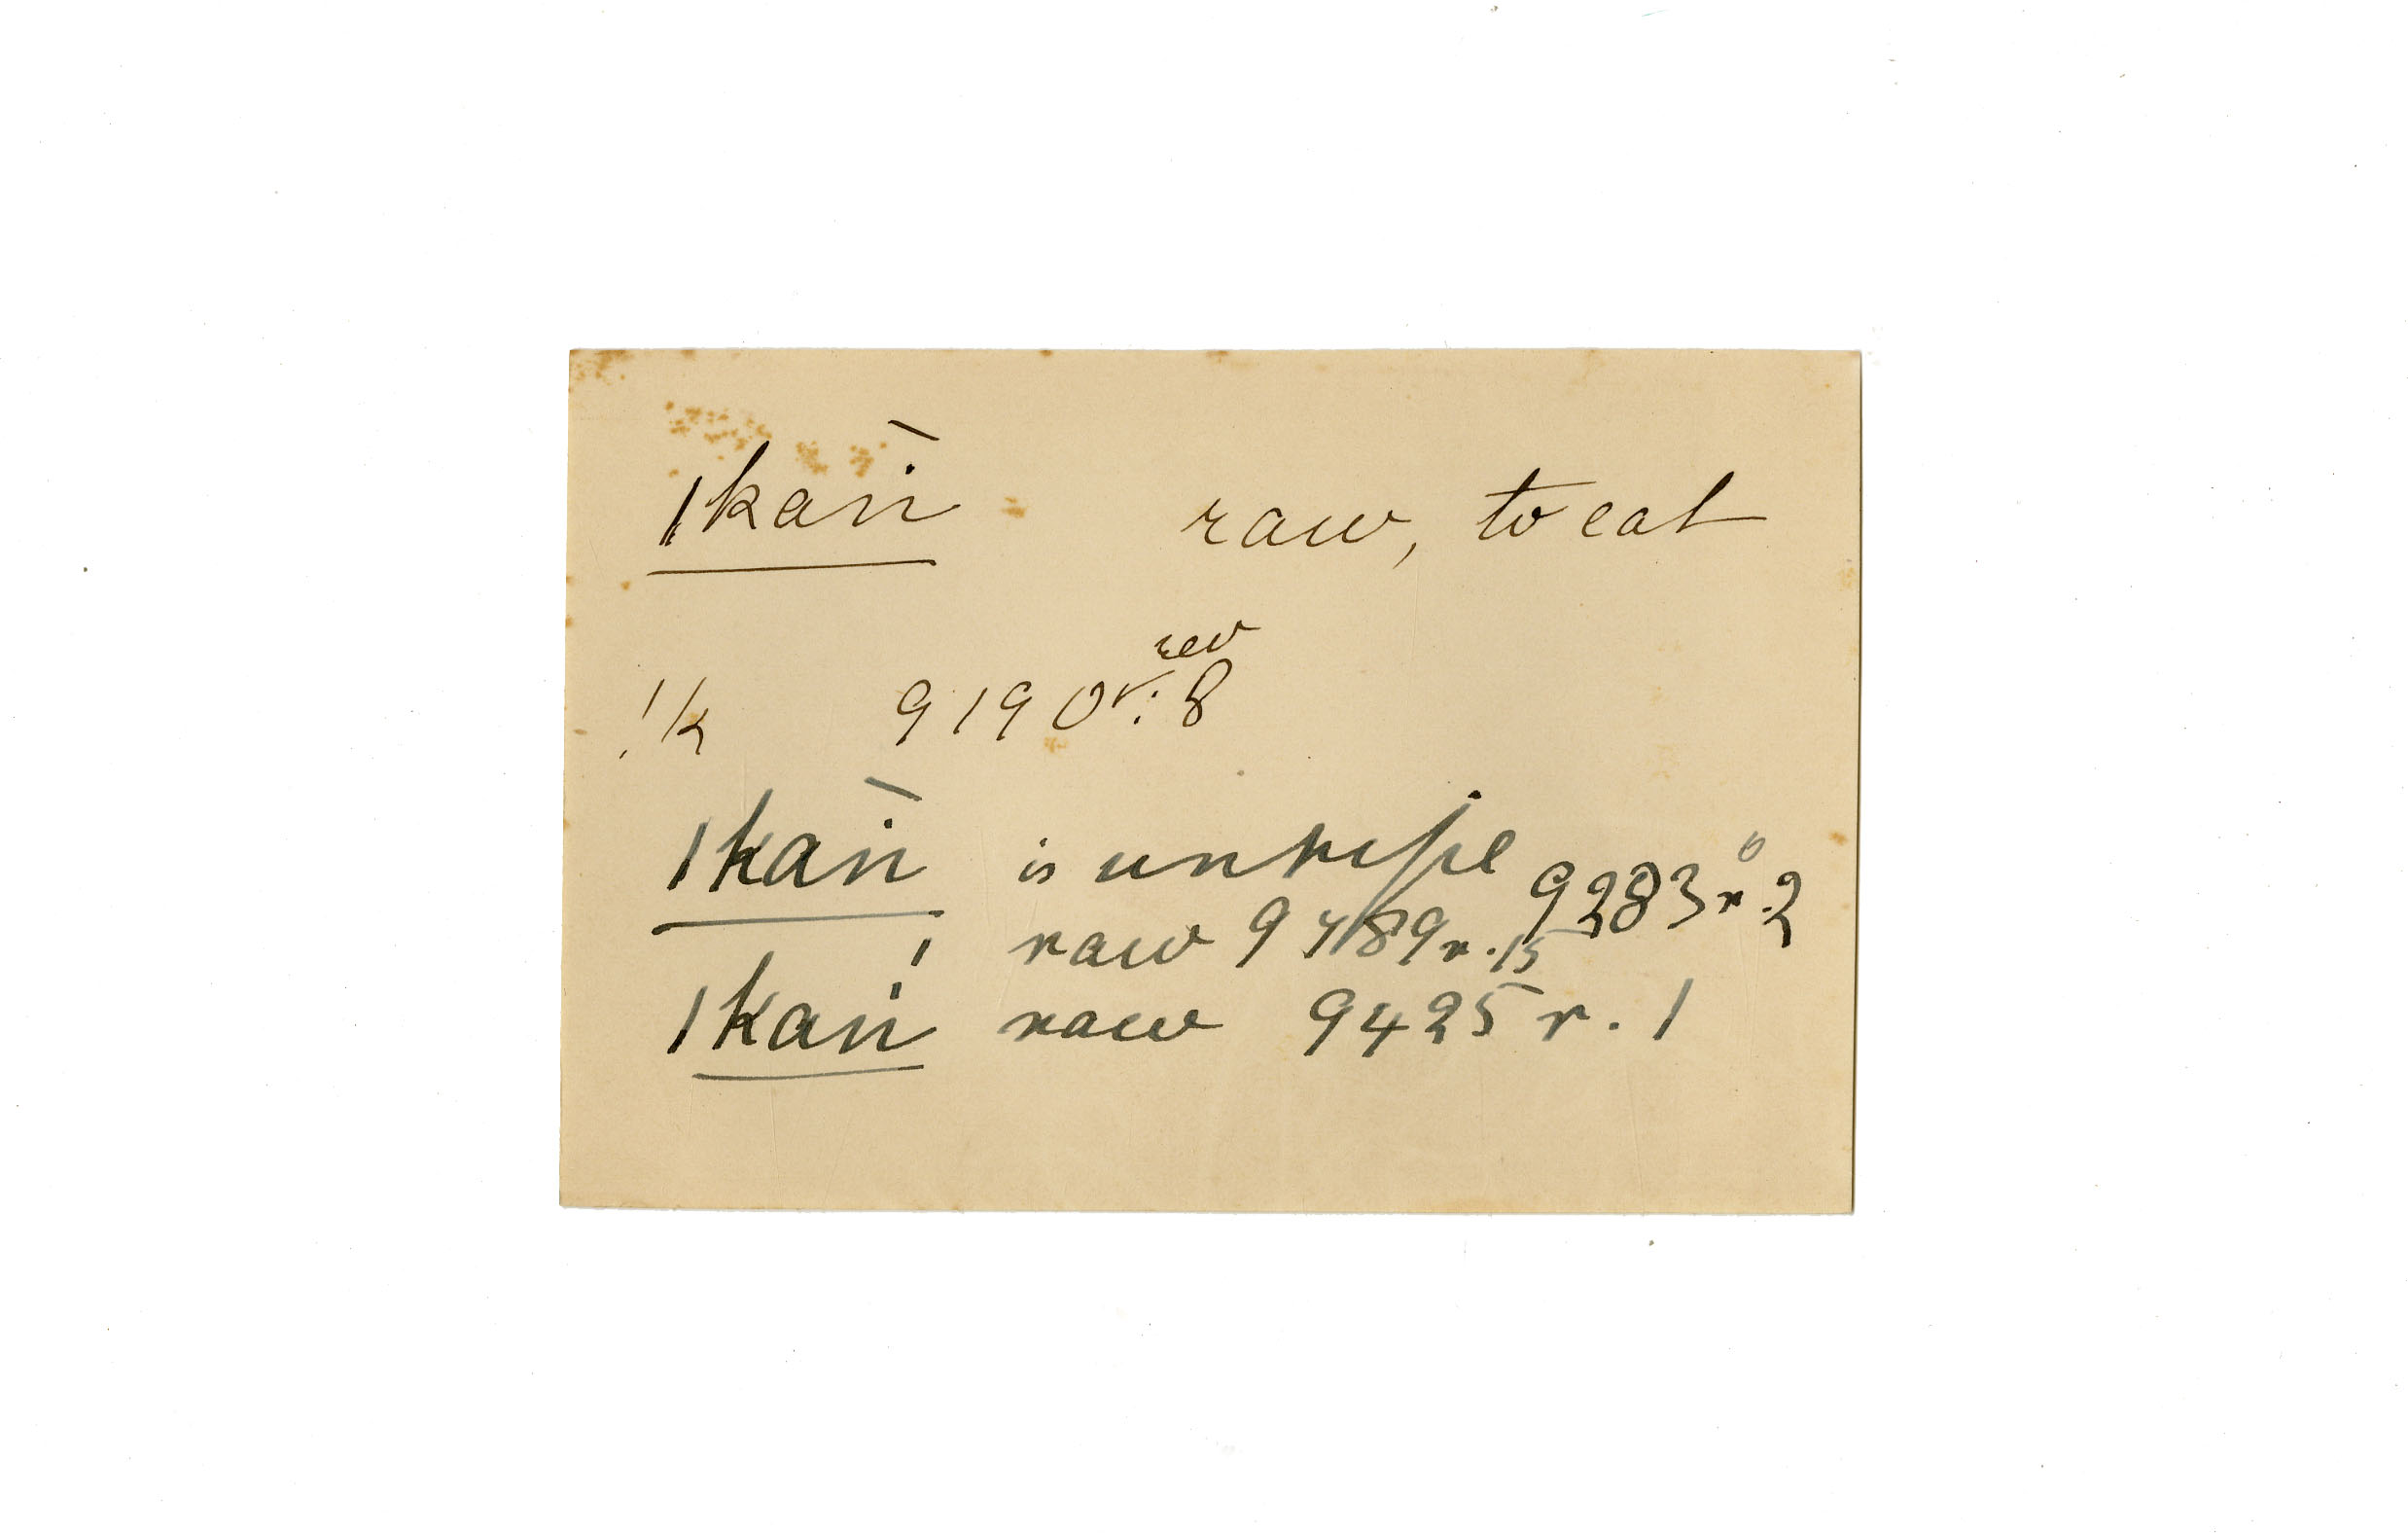 ǀkaṅ̀ raw, to eat
!k 9190 rev r. 8
ǀkaṅ̀ is unripe 9283 r. 2
raw 9489 r. 15
ǀkaṅ́ raw 9425 r. 1